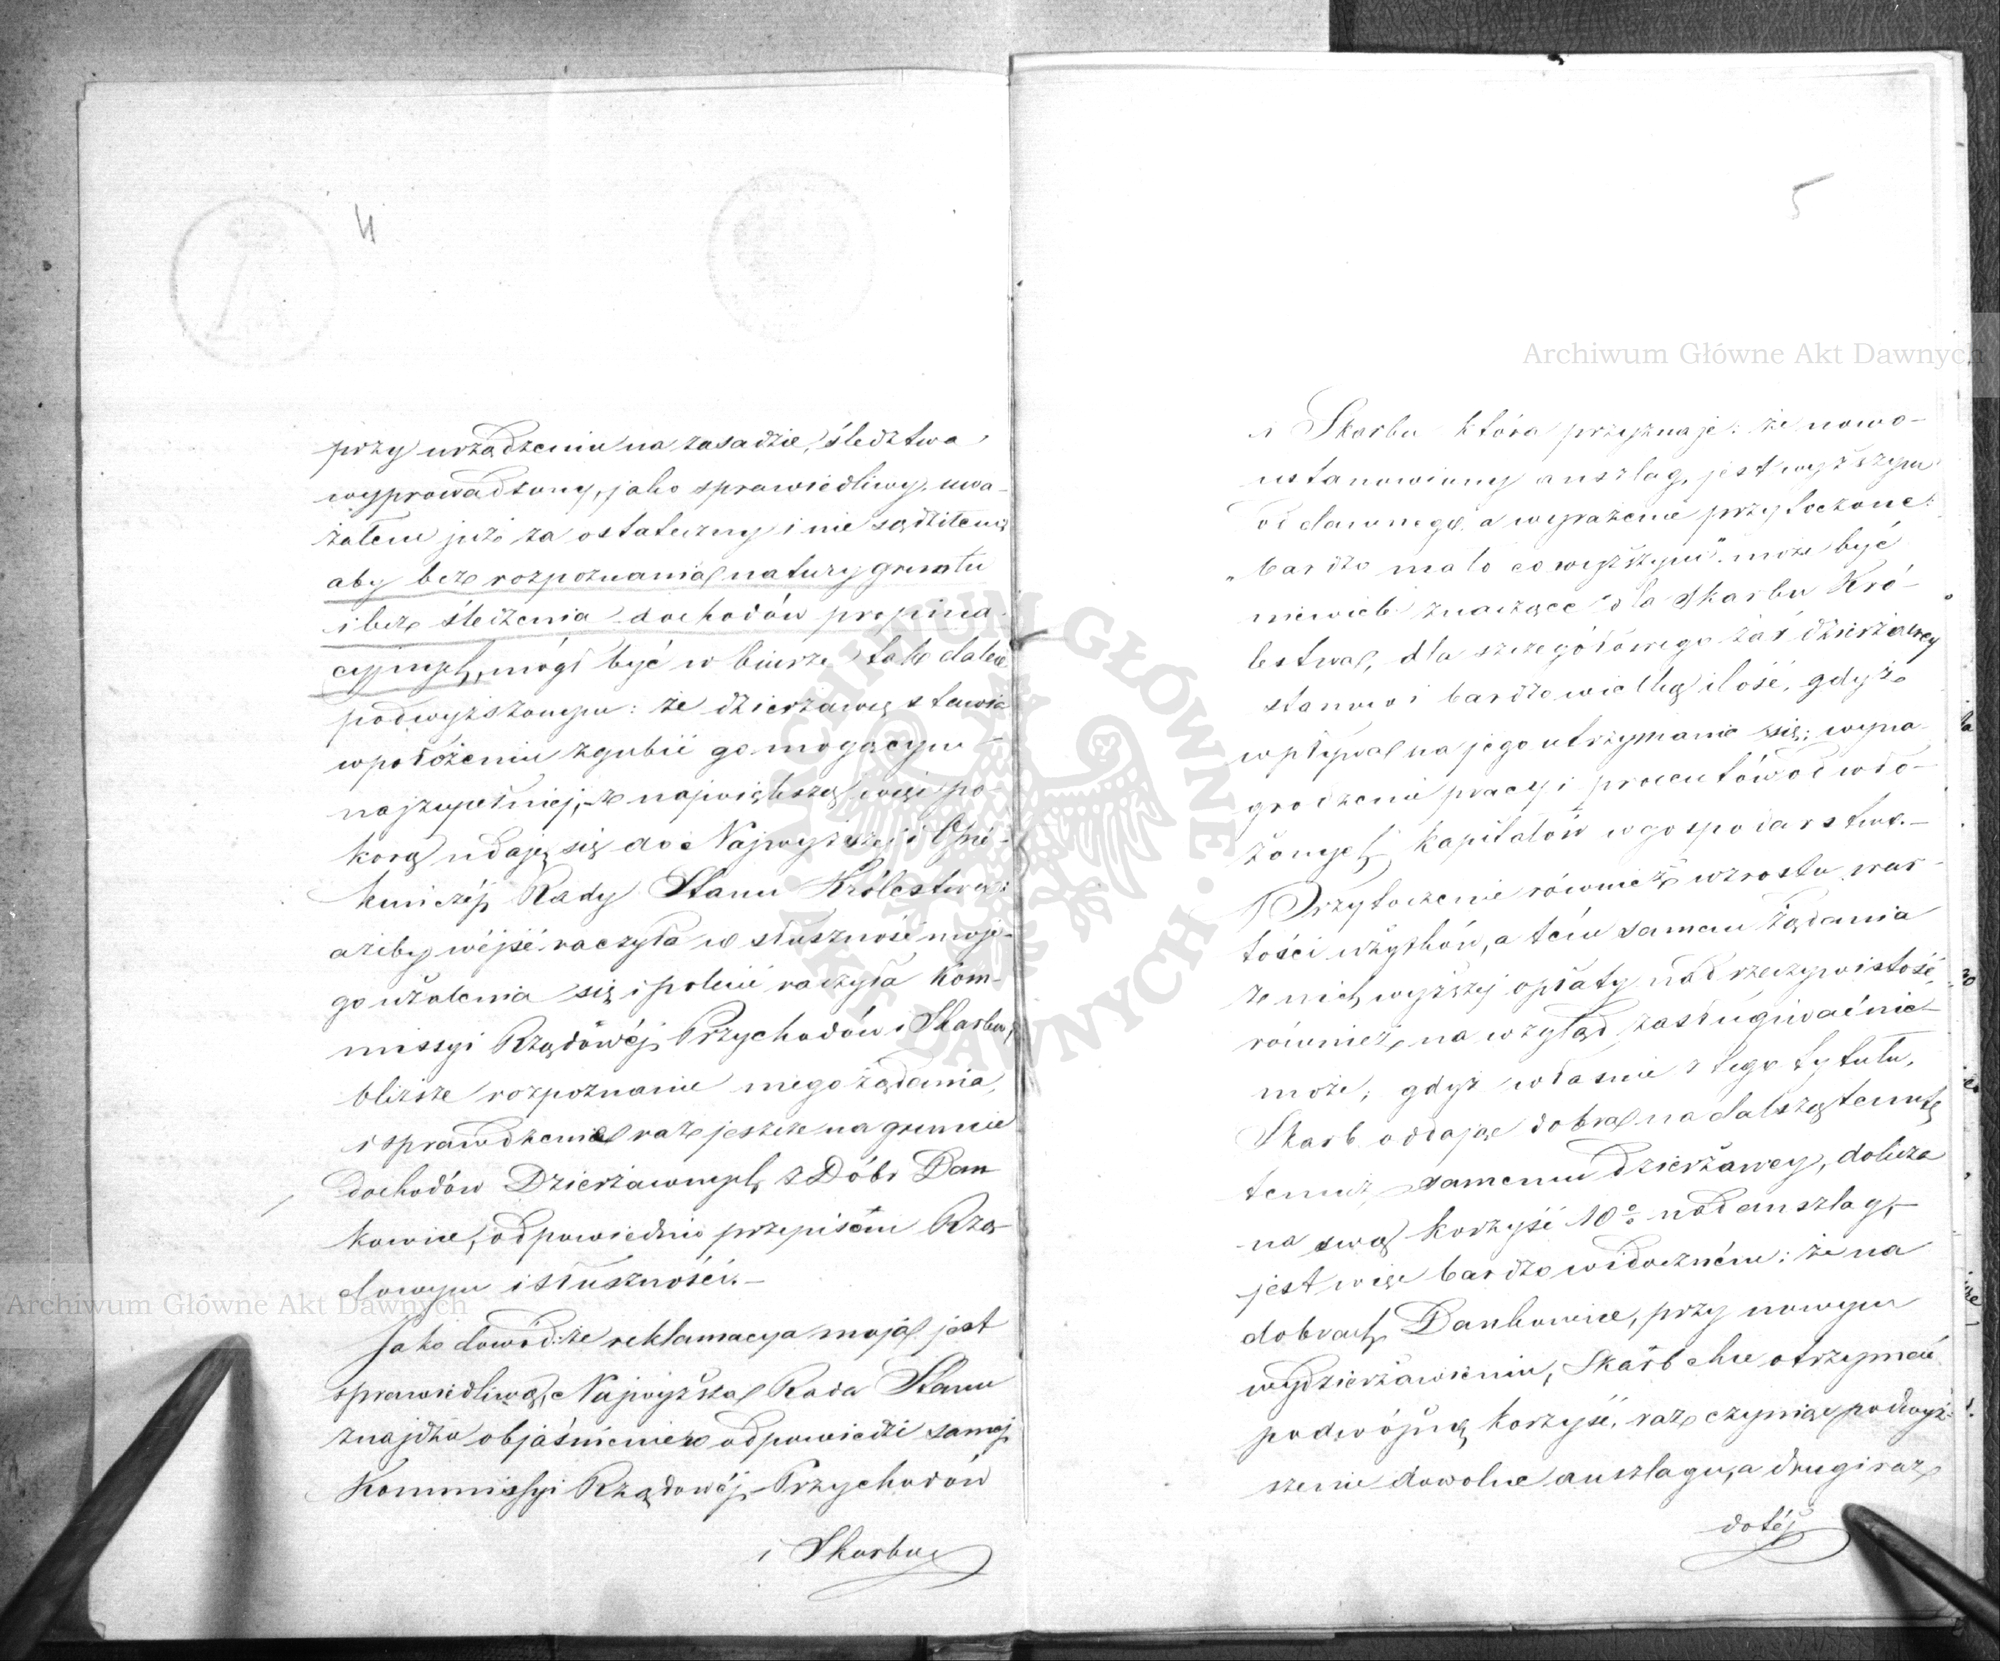 4
przy urządzeniu na zasadzie, śledztwa
wyprowadzony, jako sprawiedliwy, uwa-
żałem już za ostateczny i nie sądziłem
aby bez rozpoznania natury gruntu
i bez śledzenia dochodów propina-
cyjnych, mógł być w biurze tak dalece
podwyższonym: że dzierżawcę stawia
w położeniu zgubić go mogącym
najzupełniej, z największą więc po-
korą udaję się do Najwyższej i Opie-
kuńczéj Rady Stanu Królestwa:
ażeby wéjść raczyła w słuszność moje-
go użalenia się i polecić raczyła Kom-
missyi Rządowéj Przychodów i Skarbu,
bliższe rozpoznanie mego żądania,
i sprawdzenie raz jeszcze na gruncie
dochodów Dzierżawnych z Dóbr Dan
kowice, odpowiednio przepisom Rzą-
dowym i słuszności.—
Jako dowód: że reklamacya moja jest
sprawiedliwą, Najwyższa Rada Stanu
znajdzie objaśnienie w odpowiedzi samej
Kommissyi Rządowéj Przychodów
i Skarbu
5
i Skarbu która przyznaje: że nowo-
ustanowiony anszlag, jest wyższym
od dawnego, a wyrażenie przytoczone:
„bardzo mało co wyższym" może być
niewiele znaczące dla Skarbu Kró-
lestwa, dla szczegółowego zaś dzierżawcy
stanowi bardzo wielką ilość, gdyż
wpływa na jego utrzymanie się; wyna-
grodzenie pracy i procentów od wło-
żonych kapitałów w gospodarstwo.—
Przytoczenie również wzrostu war-
tości użytków, a tém samem żądania
z nich wyższéj opłaty nad rzeczywistość,
również na wzgląd zasługiwać nie
może, gdyż właśnie z tego tytułu,
Skarb oddając dobra na dalszą tenutę
temuż samemu dzierżawcy, dolicza
na swą korzyść 10% nad anszlag,—
jest więc bardzo widoczném: że na
dobrach Dankowice, przy nowym
wydzierżawieniu, Skarb chce otrzymać
podwójną korzyść, raz czyniąc podwyż-
szenie dowolne anszlagu, a drugi raz
do téj
Archiwum Główne Akt Dawnych
Archiwum Główne Akt Dawnych
ARCHIWUM GŁÓWNE · AKT DAWNYCH ·